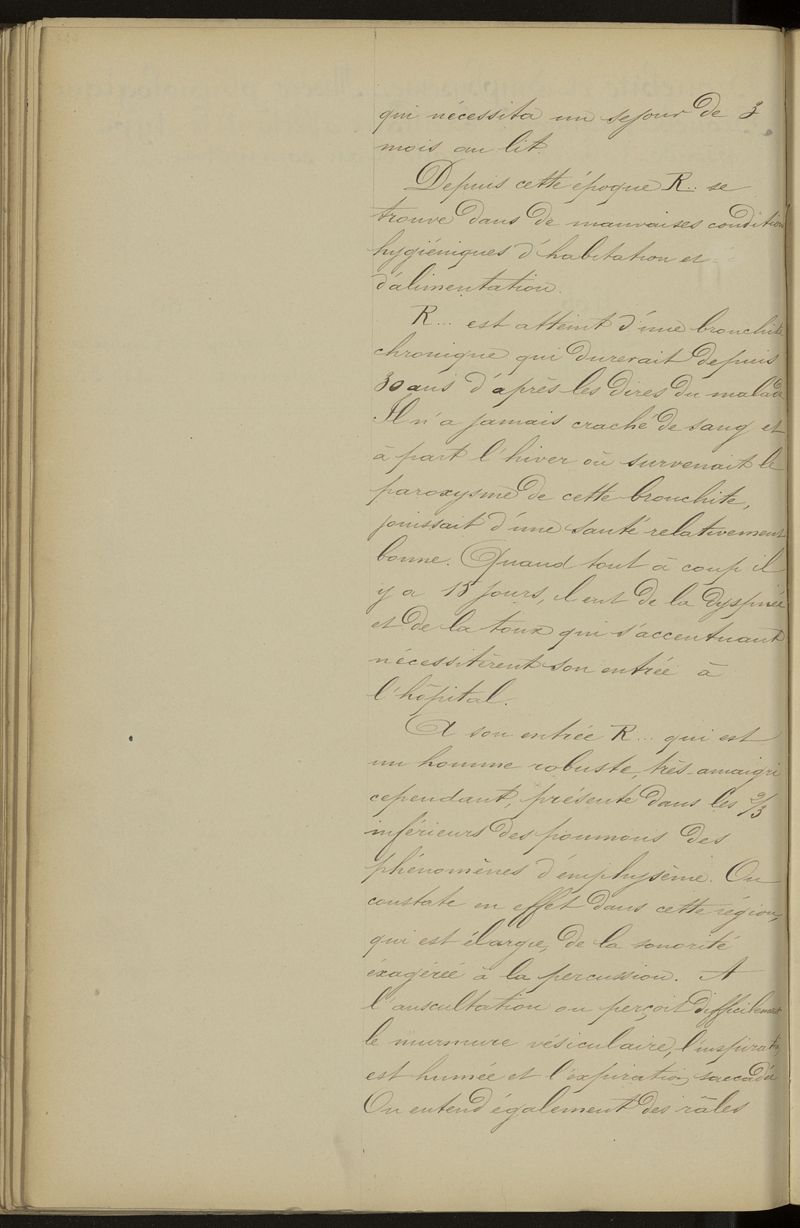 qui nécessita un sejour de 3
mois au lit.
Depuis cette époque R... se
trouve dans de mauvaises condition
hygiéniques d'habitation et
d'alimentation.
R... est atteint d'une bronchite
chronique qui durerait depuis
30 ans d'après les dires du malade
Il n'a jamais craché de sang et
à part l'hiver où survenait le
paroxysme de cette bronchite,
jouissait d'une santé relativement
bonne. Quand tout à coup il
y a 15 jours, il eut de la dyspnée
et de la toux qui s'accentuant
nécessitèrent son entrée à
l'hôpital.
A son entrée R... qui est
un homme robuste, très amaigri
cependant, présente dans les 2/3
inférieurs des poumons des
phénomènes d'emphysème. On
constate en effet dans cette région,
qui est élargie, de la sonorité
éxagérée à la percussion. A
l'auscultation on perçoit difficilement
le murmure vésiculaire, l'inspiration
est humée et l'expiration saccadée
On entend également des râles